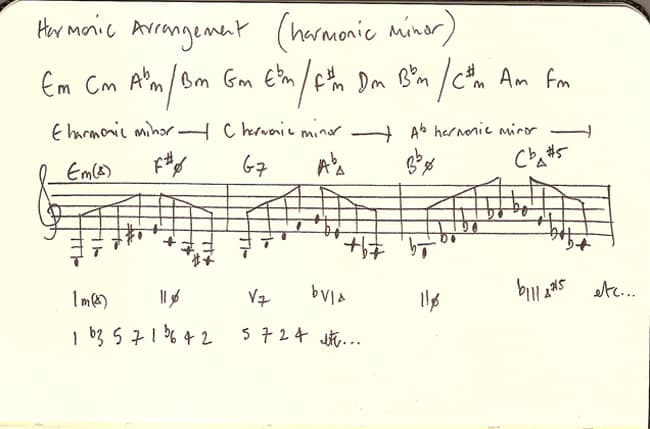 Harmonic Arrangement (harmonic minor)
Em Cm A♭m / Bm Gm E♭m / F#m Dm B♭m / C#m Am Fm
E harmonic minor → C harmonic minor → A♭ harmonic minor →
Em(Δ) F#ø G7 A♭Δ B♭ø C♭Δ#5
Im(Δ) IIø V7 bVIΔ IIø bIIIΔ#5 etc...
1 b3 5 7 1 b6 4 2 5 7 2 4 etc...